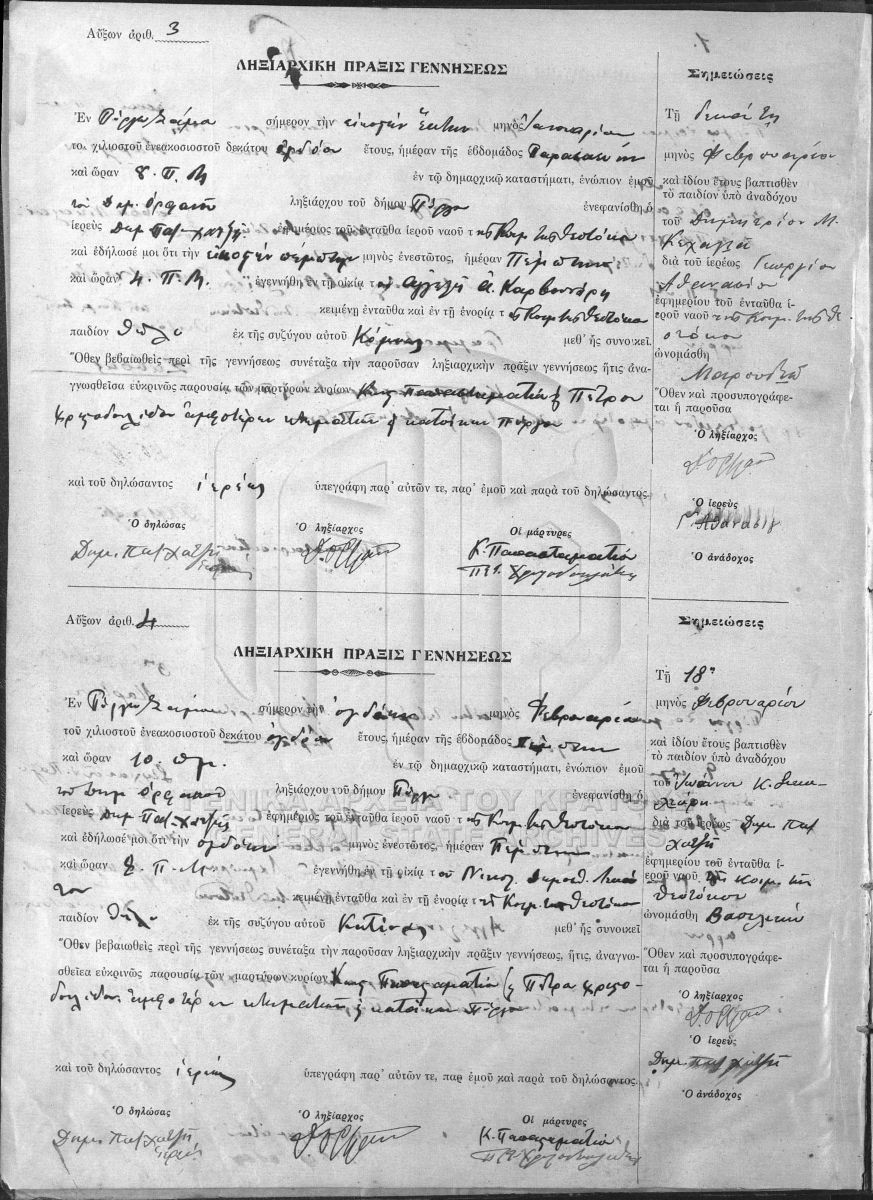 Αὔξων ἀριθ. 3
ΛΗΞΙΑΡΧΙΚΗ ΠΡΑΞΙΣ ΓΕΝΝΗΣΕΩΣ
Ἐν Πύργῳ Σάμου σήμερον τὴν εἰκοστὴν ἕκτην μηνὸς Ἰανουαρίου
τοῦ χιλιοστοῦ ἐνεακοσιοστοῦ δεκάτου ὀγδόου ἔτους, ἡμέραν τῆς ἑβδομάδος Παρασκευὴν
καὶ ὥραν 8. Π. Μ ἐν τῷ δημαρχικῷ καταστήματι, ἐνώπιον ἐμοῦ
τοῦ Δημ. Ὀρφανοῦ ληξιάρχου τοῦ δήμου Πύργου ἐνεφανίσθη ὁ
ἱερεὺς Δημ. Παπ. Χατζῆς ἐφημέριος τοῦ ἐνταῦθα ἱεροῦ ναοῦ τῆς Κοιμ. τῆς Θεοτόκου
καὶ ἐδήλωσέ μοι ὅτι τὴν εἰκοστὴν πέμπτην μηνὸς ἐνεστῶτος, ἡμέραν Πέμπτην
καὶ ὥραν 4. Π. Μ. ἐγεννήθη ἐν τῇ οἰκίᾳ τοῦ Ἀγγελῆ Καρβούνη
κειμένῃ ἐνταῦθα καὶ ἐν τῇ ἐνορίᾳ τῆς Κοιμ. τῆς Θεοτόκου
παιδίον θῆλυ ἐκ τῆς συζύγου αὐτοῦ μεθ' ἧς συνοικεῖ.
Ὅθεν βεβαιωθεὶς περὶ τῆς γεννήσεως συνέταξα τὴν παροῦσαν ληξιαρχικὴν πρᾶξιν γεννήσεως ἥτις ἀνα-
γνωσθεῖσα εὐκρινῶς παρουσίᾳ τῶν μαρτύρων κυρίων Κωνσ. Παπασταματίου καὶ Πέτρου
Χρυσοδουλίδου ἀμφοτέρων κτηματιῶν καὶ κατοίκων Πύργου
καὶ τοῦ δηλώσαντος ἱερέως ὑπεγράφη παρ' αὐτῶν τε, παρ' ἐμοῦ καὶ παρὰ τοῦ δηλώσαντος.
Ὁ δηλώσας Ὁ ληξίαρχος Οἱ μάρτυρες
Δημ. Παπ. Χατζῆς Κ. Παπασταματίου
ἱερεὺς
Σημειώσεις
Τῇ δεκάτῃ
μηνὸς Φεβρουαρίου
καὶ ἰδίου ἔτους βαπτισθὲν
τὸ παιδίον ὑπὸ ἀναδόχου
τοῦ Δημητρίου Μ.
διὰ τοῦ ἱερέως Γεωργίου
Ἀθανασίου
ἐφημερίου τοῦ ἐνταῦθα ἱ-
εροῦ ναοῦ τῆς Κοιμ. τῆς Θε
οτόκου
ὠνομάσθη
Ὅθεν καὶ προσυπογράφε-
ται ἡ παροῦσα
Ὁ ληξίαρχος
Ὁ ἱερεὺς
Γ. Ἀθανασίου
Ὁ ἀνάδοχος
Αὔξων ἀριθ. 4
ΛΗΞΙΑΡΧΙΚΗ ΠΡΑΞΙΣ ΓΕΝΝΗΣΕΩΣ
Ἐν Πύργῳ Σάμου σήμερον τὴν ὀγδόην μηνὸς Φεβρουαρίου
τοῦ χιλιοστοῦ ἐνεακοσιοστοῦ δεκάτου ὀγδόου ἔτους, ἡμέραν τῆς ἑβδομάδος Πέμπτην
καὶ ὥραν 10 πμ. ἐν τῷ δημαρχικῷ καταστήματι, ἐνώπιον ἐμοῦ
τοῦ Δημ Ὀρφανοῦ ληξιάρχου τοῦ δήμου Πύργου ἐνεφανίσθη ὁ
ἱερεὺς Δημ. Παπ. Χατζῆς ἐφημέριος τοῦ ἐνταῦθα ἱεροῦ ναοῦ τῆς Κοιμ. τῆς Θεοτόκου
καὶ ἐδήλωσέ μοι ὅτι τὴν ὀγδόην μηνὸς ἐνεστῶτος, ἡμέραν Πέμπτην
καὶ ὥραν Π. Μ. ἐγεννήθη ἐν τῇ οἰκίᾳ τοῦ Νικολ.
κειμένῃ ἐνταῦθα καὶ ἐν τῇ ἐνορίᾳ τῆς Κοιμ. τῆς Θεοτόκου
παιδίον θῆλυ ἐκ τῆς συζύγου αὐτοῦ μεθ' ἧς συνοικεῖ
Ὅθεν βεβαιωθεὶς περὶ τῆς γεννήσεως συνέταξα τὴν παροῦσαν ληξιαρχικὴν πρᾶξιν γεννήσεως, ἥτις, ἀναγνω-
σθεῖσα εὐκρινῶς παρουσίᾳ τῶν μαρτύρων κυρίων Κωνσ. Παπασταματίου καὶ Πέτρου Χρυσο-
δουλίδου ἀμφοτέρων κτηματιῶν καὶ κατοίκων Πύργου
καὶ τοῦ δηλώσαντος ἱερέως ὑπεγράφη παρ' αὐτῶν τε, παρ ἐμοῦ καὶ παρὰ τοῦ δηλώσαντος.
Ὁ δηλώσας Ὁ ληξίαρχος Οἱ μάρτυρες
Δημ. Παπ. Χατζῆς Κ. Παπασταματίου
ἱερεὺς
Σημειώσεις
Τῇ 18ῃ
μηνὸς Φεβρουαρίου
καὶ ἰδίου ἔτους βαπτισθὲν
τὸ παιδίον ὑπὸ ἀναδόχου
τοῦ Ἰωάννου Κ.
διὰ τοῦ ἱερέως Δημ. Παπ
χατζῆ
ἐφημερίου τοῦ ἐνταῦθα ἱ-
εροῦ ναοῦ τῆς Κοιμ. τῆς
Θεοτόκου
ὠνομάσθη Βασιλικὴ
Ὅθεν καὶ προσυπογράφε-
ται ἡ παροῦσα
Ὁ ληξίαρχος
Ὁ ἱερεὺς
Δημ. Παπ Χατζῆς
Ὁ ἀνάδοχος
ΓΕΝΙΚΑ ΑΡΧΕΙΑ ΤΟΥ ΚΡΑΤΟΥΣ
GENERAL STATE ARCHIVES